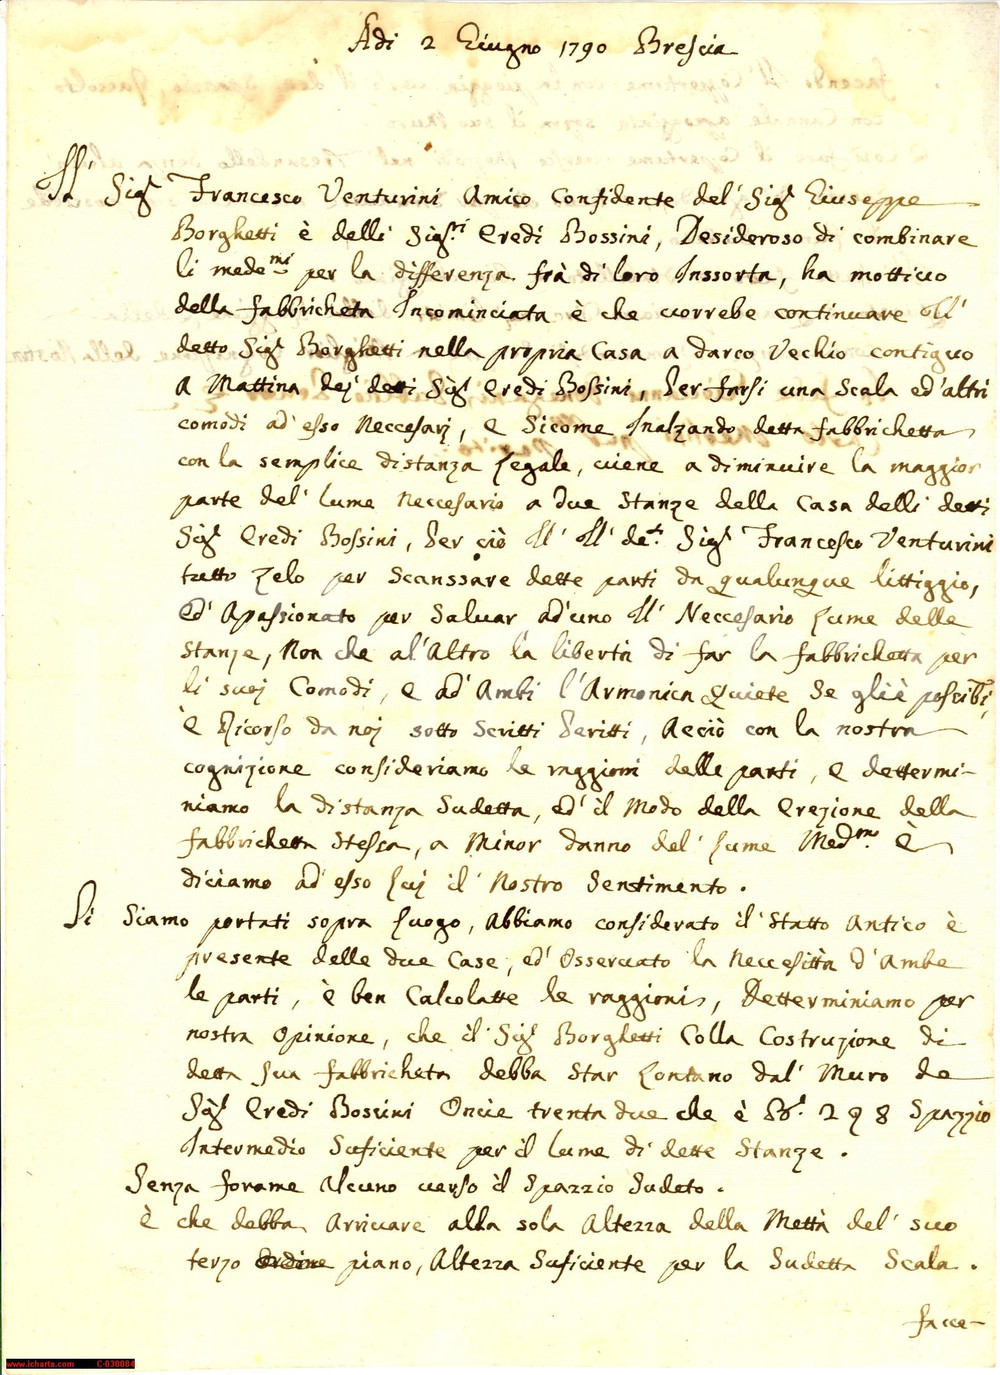 Adi 2 Giugno 1790 Brescia
Il Sigr Francesco Venturini Amico Confidente del' Sigr Giuseppe
Borghetti è delli Sigri Eredi Bossini, Desideroso di combinare
li medemi per la differenza frà di loro Inssorta, ha mottivo
della fabbricheta Incominciata è che vorrebe continuare Il'
detto Sigr Borghetti nella propria Casa a Darco Vechio contiguo
A Mattina dej detti Sigr Eredi Bossini, Per farsi una Scala ed'altri
comodi ad'esso Neccesarj, e Sicome Inalzando detta fabbrichetta
con la semplice distanza Legale, viene a diminuire la maggior
parte del' lume Neccesario a due Stanze della Casa delli detti
Sigr Eredi Bossini, Per ciò Il' Il' det. Sigr Francesco Venturini
tutto Zelo per Scanssare dette parti da qualunque littiggio,
ed' Apassionato per Salvar ad'uno Il' Neccesario Lume delle
Stanze, Non che al'Altro la libertà di far la fabbrichetta per
li suoj Comodi, e ad'Ambi l'Armonica Quiete Se gliè possibil,
è Ricorso da noj sotto Scritti Peritti, Acciò con la nostra
cognizione consideriamo le raggioni delle parti, e dettermi-
niamo la distanza Sudetta, ed' il Modo della Erezione della
fabbrichetta Stessa, a Minor danno del' Lume Medmo. È
diciamo ad'esso Luj il' Nostro Sentimento.
Si Siamo portati sopra Luogo, Abbiamo considerato il' Statto Antico è
presente delle due Case, ed' Osservato la Neccesittà d'Ambe
le parti, è ben Calcolatte le raggioni, Detterminiamo per
nostra Opinione, che il' Sigr Borghetti Colla Costruzione di
detta Sua fabbricheta debba Star Lontano dal' Muro de
Sigr Eredi Bossini Oncie trenta due che è Br. 2 q 8 Spazzio
Intermedio Suficiente per il lume di dette Stanze.
Senza forame Alcuno verso il Spazzio Sudeto.
è che debba Arrivare alla sola Altezza della Mettà del' suo
terzo piano, Altezza Suficiente per la Sudetta Scala.
facce-
www.icharta.com C-030084